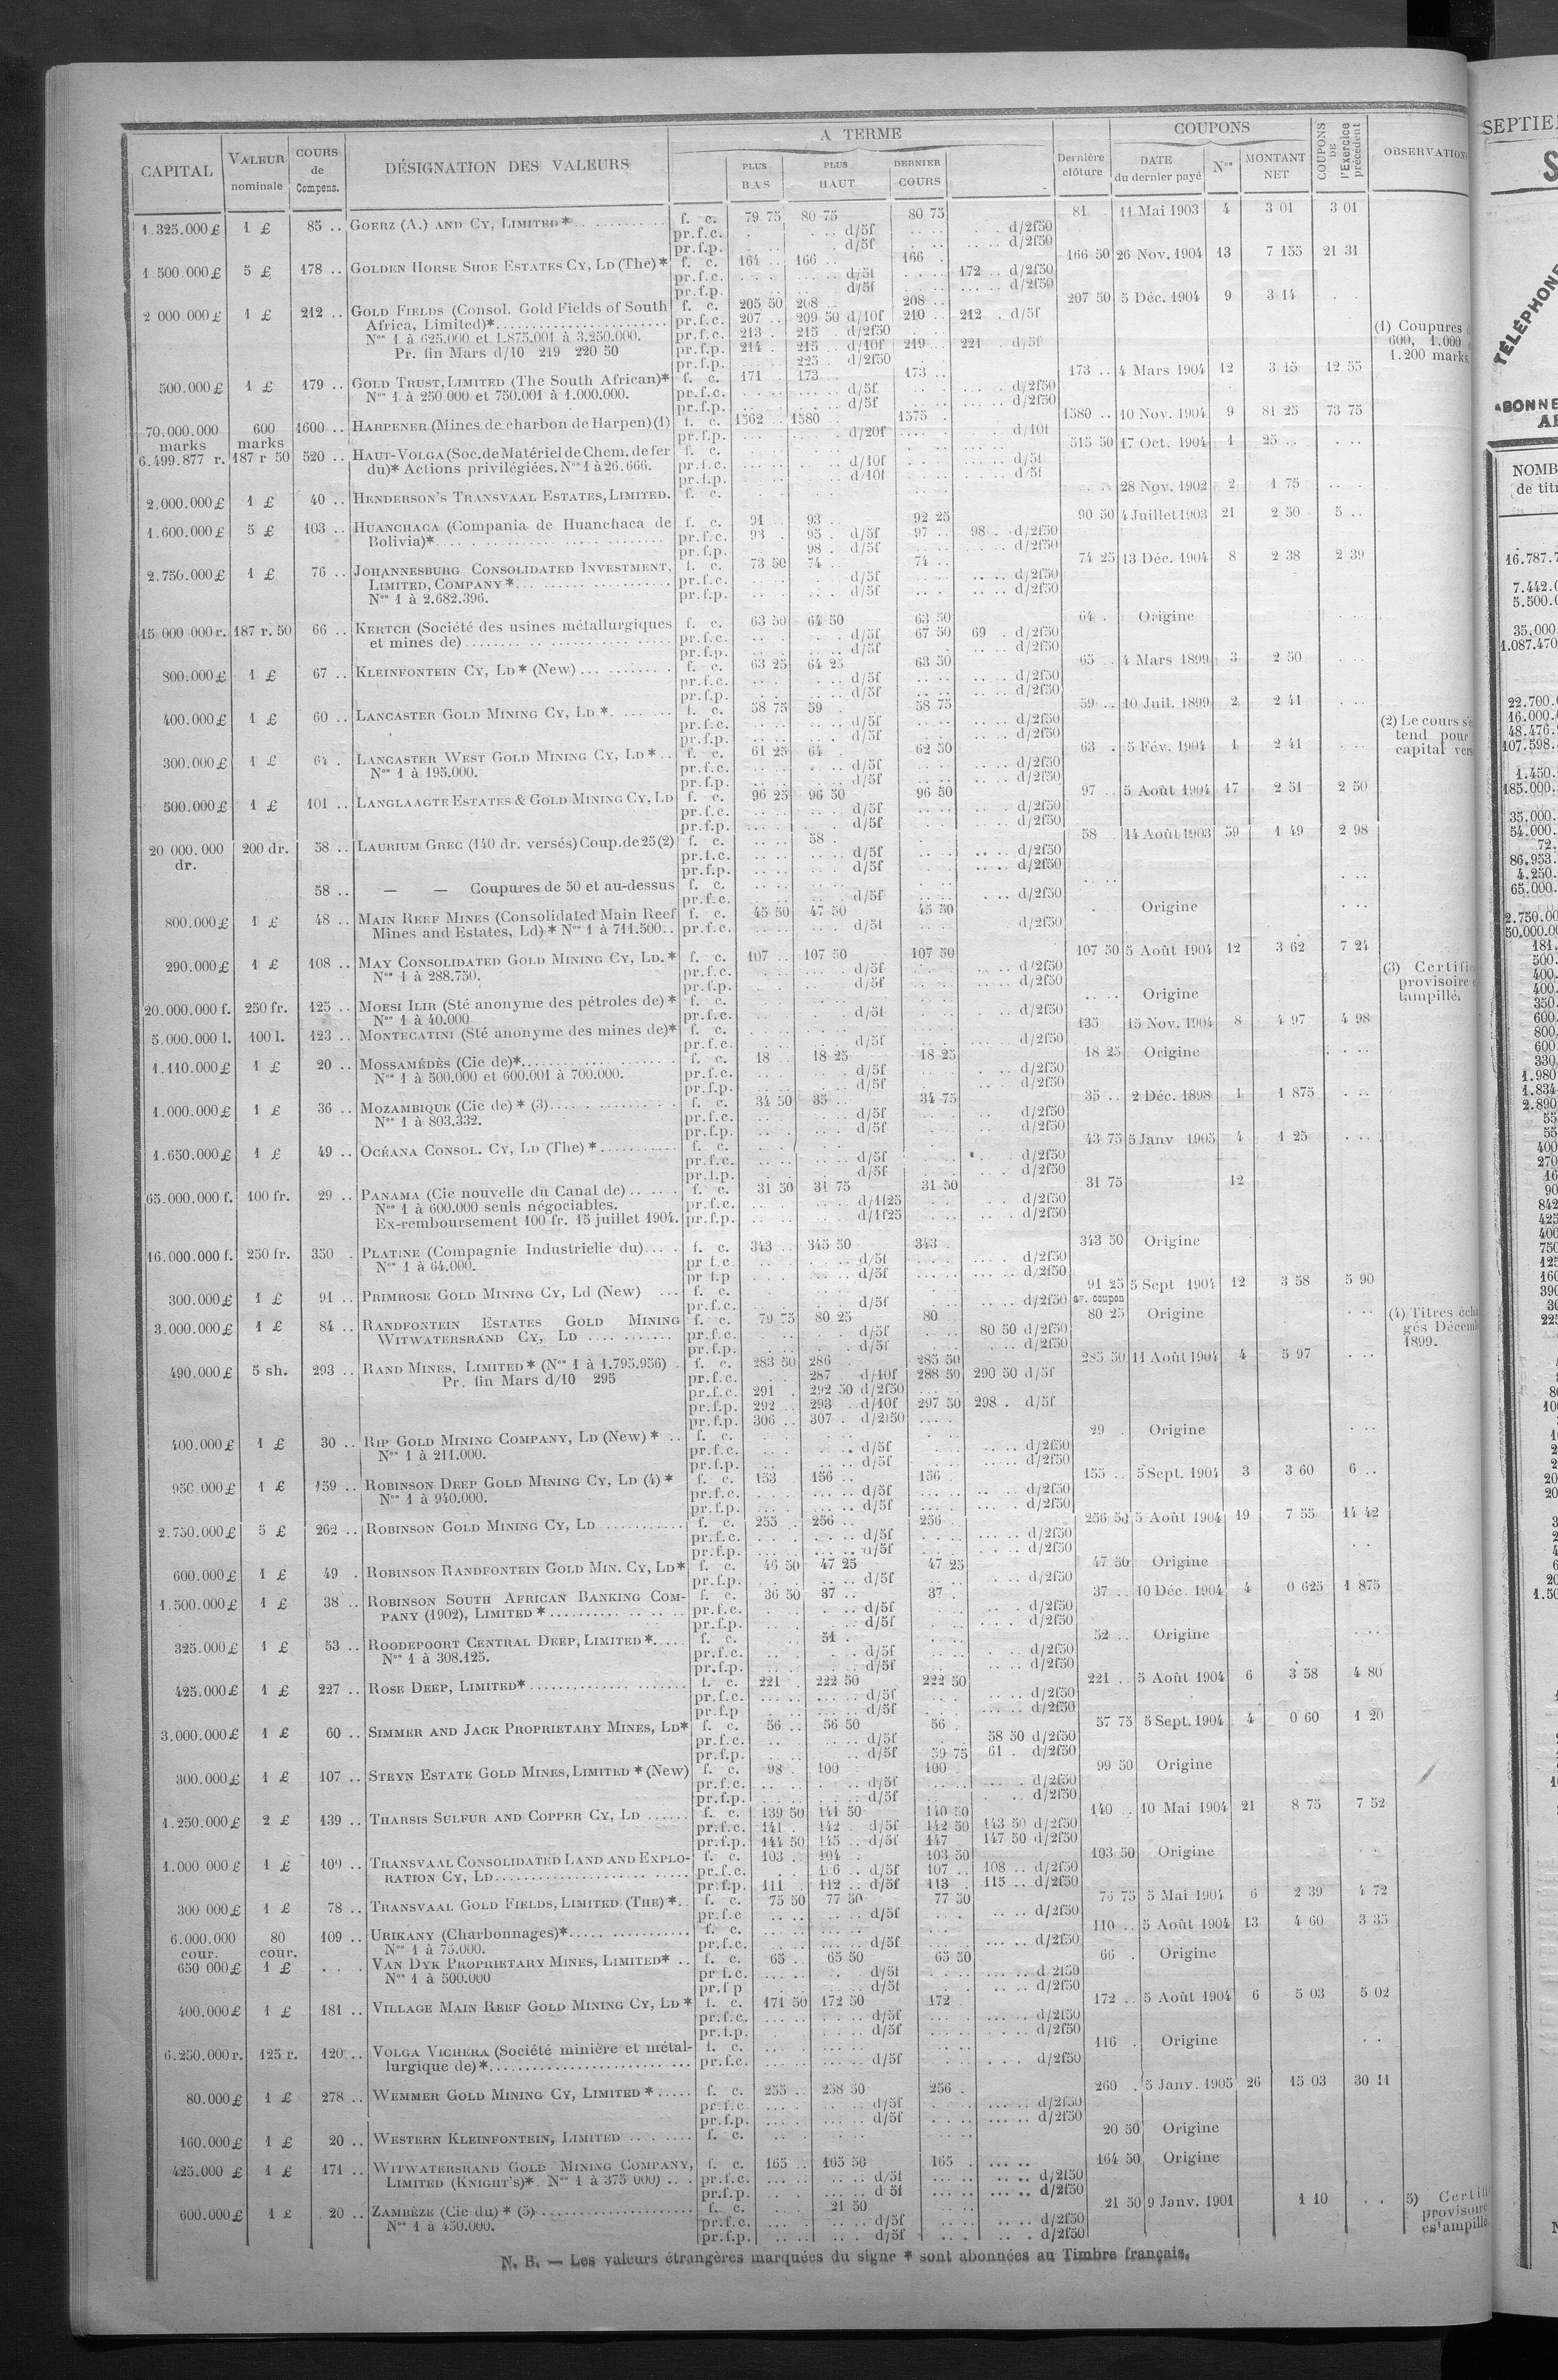 CAPITAL | VALEUR nominale | COURS de Compens. | DÉSIGNATION DES VALEURS | A TERME | PLUS BAS | PLUS HAUT | DERNIER COURS | Dernière clôture | COUPONS | DATE du dernier payé | Nos | MONTANT NET | COUPONS DE l'Exercice précédent | OBSERVATION
1.325.000 £ 1 £ 85 .. GOERZ (A.) AND CY, LIMITED* f. c. 79 75 80 75 80 75 81 . 11 Mai 1903 4 3 01 3 01
pr.f.c. d/5f d/2f50
pr.f.p. d/5f d/2f50
1.500.000 £ 5 £ 178 .. GOLDEN HORSE SHOE ESTATES CY, LD (The)* f. c. 164 .. 166 .. 166 . 166 50 26 Nov. 1904 13 7 155 21 31
pr.f.c. d/5f 172 .. d/2f50
pr.f.p. d/5f d/2f50
2 000.000 £ 1 £ 212 .. GOLD FIELDS (Consol. Gold Fields of South f. c. 205 50 208 .. 208 .. 207 50 5 Déc. 1904 9 3 14
Africa, Limited)* pr.f.c. 207 .. 209 50 d/10f 210 .. 212 . d/5f
Nos 1 à 625.000 et 1.875.001 à 3.250.000. pr.f.c. 213 .. 215 . d/2f50
Pr. fin Mars d/10 219 220 50 pr.f.p. 214 . 215 .. d/10f 219 .. 221 . d/5f
pr.f.p. 225 . d/2f50
(1) Coupures
600, 1.000
1.200 marks,
500.000 £ 1 £ 179 .. GOLD TRUST, LIMITED (The South African)* f. c. 171 . 173 .. 173 .. 173 .. 4 Mars 1904 12 3 15 12 55
Nos 1 à 250 000 et 750.001 à 1.000.000. pr.f.c. d/5f d/2f50
pr.f.p. d/5f d/2f50
70.000.000 marks 600 marks 1600 .. HARPENER (Mines de charbon de Harpen) (1) f. c. 1562 .. 1580 1575 . 1580 .. 10 Nov. 1904 9 81 25 73 75
pr.f.p. d/20f d/10f
6.499.877 r. 187 r 50 520 .. HAUT-VOLGA (Soc. de Matériel de Chem. de fer f. c. 515 50 17 Oct. 1904 1 25 ..
du)* Actions privilégiées. Nos 1 à 26.666. pr.f.c. d/10f d/5f
pr.f.p. d/10f d/5f
2.000.000 £ 1 £ 40 .. HENDERSON'S TRANSVAAL ESTATES, LIMITED. f. c. 28 Nov. 1902 2 1 75
1.600.000 £ 5 £ 103 .. HUANCHACA (Compania de Huanchaca de f. c. 91 .. 93 .. 92 25 90 50 4 Juillet 1903 21 2 50 5 ..
Bolivia)* pr.f.c. 93 . 95 . d/5f 97 .. 98 . d/2f50
pr.f.p. 98 . d/5f d/2f50
2.750.000 £ 1 £ 76 .. JOHANNESBURG CONSOLIDATED INVESTMENT, f. c. 73 50 74 .. 74 .. 74 25 13 Déc. 1904 8 2 38 2 39
LIMITED, COMPANY* pr.f.c. d/5f d/2f50
Nos 1 à 2.682.396. pr.f.p. d/5f d/2f50
15 000 000 r. 187 r. 50 66 .. KERTCH (Société des usines métallurgiques f. c. 63 50 64 50 63 50 64 . Origine
et mines de) pr.f.c. d/5f 67 50 69 . d/2f50
pr.f.p. d/5f d/2f50
800.000 £ 1 £ 67 .. KLEINFONTEIN CY, LD* (New) f. c. 63 25 64 25 63 50 65 .. 4 Mars 1899 3 2 50
pr.f.c. d/5f d/2f50
pr.f.p. d/5f d/2f50
400.000 £ 1 £ 60 .. LANCASTER GOLD MINING CY, LD* f. c. 58 75 59 58 75 59 .. 10 Juil. 1899 2 2 41
pr.f.c. d/5f d/2f50
pr.f.p. d/5f d/2f50
(2) Le cours s'e
tend pour
capital vers
300.000 £ 1 £ 64 . LANCASTER WEST GOLD MINING CY, LD* f. c. 61 25 64 62 50 63 . 5 Fév. 1904 1 2 41
Nos 1 à 195.000. pr.f.c. d/5f d/2f50
pr.f.p. d/5f d/2f50
500.000 £ 1 £ 101 .. LANGLAAGTE ESTATES & GOLD MINING CY, LD f. c. 96 25 96 50 96 50 97 .. 5 Août 1904 17 2 51 2 50
pr.f.c. d/5f d/2f50
pr.f.p. d/5f d/2f50
20 000 000 dr. 200 dr. 58 .. LAURIUM GREC (140 dr. versés) Coup. de 25 (2) f. c. 58 .. 58 14 Août 1903 59 1 49 2 98
pr.f.c. d/5f d/2f50
pr.f.p. d/5f d/2f50
58 .. — — Coupures de 50 et au-dessus f. c.
pr.f.c. d/5f d/2f50
800.000 £ 1 £ 48 .. MAIN REEF MINES (Consolidated Main Reef f. c. 45 50 47 50 45 50 Origine
Mines and Estates, Ld)* Nos 1 à 711.500. pr.f.c. d/5f d/2f50
290.000 £ 1 £ 108 .. MAY CONSOLIDATED GOLD MINING CY, LD.* f. c. 107 .. 107 50 107 50 107 50 5 Août 1904 12 3 62 7 24
Nos 1 à 288.750. pr.f.c. d/5f d/2f50
pr.f.p. d/5f d/2f50
(3) Certific
provisoire
tampillé.
20.000.000 f. 250 fr. 125 .. MOESI ILIR (Sté anonyme des pétroles de)* f. c. Origine
Nos 1 à 40.000 pr.f.c. d/5f d/2f50
5.000.000 l. 100 l. 123 .. MONTECATINI (Sté anonyme des mines de)* f. c. 135 15 Nov. 1904 8 4 97 4 98
pr.f.c. d/5f d/2f50
1.110.000 £ 1 £ 20 .. MOSSAMÉDÈS (Cie de)* f. c. 18 .. 18 25 18 25 18 25 Origine
Nos 1 à 500.000 et 600.001 à 700.000. pr.f.c. d/5f d/2f50
pr.f.p. d/5f d/2f50
1.000.000 £ 1 £ 36 .. MOZAMBIQUE (Cie de)* (3) f. c. 34 50 35 .. 34 75 35 .. 2 Déc. 1898 1 1 875
Nos 1 à 803.332. pr.f.c. d/5f d/2f50
pr.f.p. d/5f d/2f50
1.650.000 £ 1 £ 49 .. OCÉANA CONSOL. CY, LD (The)* f. c. 43 75 5 Janv 1905 4 1 25
pr.f.c. d/5f d/2f50
pr.f.p. d/5f d/2f50
65.000.000 f. 100 fr. 29 .. PANAMA (Cie nouvelle du Canal de) f. c. 31 50 31 75 31 50 31 75 12
Nos 1 à 600.000 seuls négociables. pr.f.c. d/1f25 d/2f50
Ex-remboursement 100 fr. 15 juillet 1904. pr.f.p. d/1f25 d/2f50
16.000.000 f. 250 fr. 350 . PLATINE (Compagnie Industrielle du) f. c. 343 .. 345 50 343 . 343 50 Origine
Nos 1 à 64.000. pr f.c. d/5f d/2f50
pr f.p d/5f d/2f50
300.000 £ 1 £ 91 .. PRIMROSE GOLD MINING CY, Ld (New) f. c. 91 25 av. coupon 5 Sept 1904 12 3 58 5 90
pr.f.c. d/5f d/2f50
3.000.000 £ 1 £ 84 .. RANDFONTEIN ESTATES GOLD MINING f. c. 79 75 80 25 80 80 25 Origine
WITWATERSRAND CY, LD pr.f.c. d/5f 80 50 d/2f50
pr.f.p. d/5f d/2f50
(4) Titres écha
gés Décemb
1899.
490.000 £ 5 sh. 293 .. RAND MINES, LIMITED* (Nos 1 à 1.795.956) f. c. 283 50 286 285 50 285 50 11 Août 1904 4 5 97
Pr. fin Mars d/10 295 pr.f.c. 287 d/10f 288 50 290 50 d/5f
pr.f.c. 291 . 292 50 d/2f50
pr.f.p. 292 .. 293 d/10f 297 50 298 . d/5f
pr.f.p. 306 .. 307 . d/2f50
400.000 £ 1 £ 30 .. RIP GOLD MINING COMPANY, LD (New)* f. c. 29 . Origine
Nos 1 à 211.000. pr.f.c. d/5f d/2f50
pr.f.p. d/5f d/2f50
950.000 £ 1 £ 159 .. ROBINSON DEEP GOLD MINING CY, LD (4)* f. c. 153 156 .. 156 . 155 .. 5 Sept. 1904 3 3 60 6 ..
Nos 1 à 940.000. pr.f.c. d/5f d/2f50
pr.f.p. d/5f d/2f50
2.750.000 £ 5 £ 262 .. ROBINSON GOLD MINING CY, LD f. c. 255 . 256 .. 256 . 256 50 5 Août 1904 19 7 55 14 42
pr.f.c. d/5f d/2f50
pr.f.p. d/5f d/2f50
600.000 £ 1 £ 49 . ROBINSON RANDFONTEIN GOLD MIN. CY, LD* f. c. 46 50 47 25 47 25 47 50 Origine
pr.f.p. d/5f d/2f50
1.500.000 £ 1 £ 38 .. ROBINSON SOUTH AFRICAN BANKING COM- f. c. 36 50 37 .. 37 . 37 .. 10 Déc. 1904 4 0 625 1 875
PANY (1902), LIMITED* pr.f.c. d/5f d/2f50
pr.f.p. d/5f d/2f50
325.000 £ 1 £ 53 .. ROODEPOORT CENTRAL DEEP, LIMITED* f. c. 51 . 52 .. Origine
Nos 1 à 308.125. pr.f.c. d/5f d/2f50
pr.f.p. d/5f d/2f50
425.000 £ 1 £ 227 .. ROSE DEEP, LIMITED* f. c. 221 . 222 50 222 50 221 .. 5 Août 1904 6 3 58 4 80
pr.f.c. d/5f d/2f50
pr.f.p d/5f d/2f50
3.000.000 £ 1 £ 60 .. SIMMER AND JACK PROPRIETARY MINES, LD* f. c. 56 .. 56 50 56 . 57 75 5 Sept. 1904 4 0 60 1 20
pr.f.c. d/5f 58 50 d/2f50
pr.f.p. d/5f 59 75 61 . d/2f50
300.000 £ 1 £ 107 .. STEYN ESTATE GOLD MINES, LIMITED* (New) f. c. 98 . 100 100 99 50 Origine
pr.f.c. d/5f d/2f50
pr.f.p. d/5f d/2f50
1.250.000 £ 2 £ 139 .. THARSIS SULFUR AND COPPER CY, LD f. c. 139 50 141 50 140 50 140 . 10 Mai 1904 21 8 75 7 52
pr.f.c. 141 . 142 . d/5f 142 50 143 50 d/2f50
pr.f.p. 144 50 145 .. d/5f 147 147 50 d/2f50
1.000 000 £ 1 £ 109 .. TRANSVAAL CONSOLIDATED LAND AND EXPLO- f. c. 103 .. 104 . 103 50 103 50 Origine
RATION CY, LD pr.f.c. 106 .. d/5f 107 .. 108 .. d/2f50
pr.f.p. 111 . 112 .. d/5f 113 . 115 .. d/2f50
300 000 £ 1 £ 78 .. TRANSVAAL GOLD FIELDS, LIMITED (THE)* f. c. 75 50 77 50 77 50 76 75 5 Mai 1904 6 2 39 4 72
pr.f.c d/5f d/2f50
6.000.000 cour. 80 cour. 109 .. URIKANY (Charbonnages)* f. c. 110 .. 5 Août 1904 13 4 60 3 35
Nos 1 à 75.000. pr.f.c. d/5f d/2f50
650 000 £ 1 £ . . . VAN DYK PROPRIETARY MINES, LIMITED* f. c. 65 .. 65 50 65 50 66 . Origine
Nos 1 à 500.000 pr f.c. d/5f d/2f50
pr.f p d/5f d/2f50
400.000 £ 1 £ 181 .. VILLAGE MAIN REEF GOLD MINING CY, LD* f. c. 171 50 172 50 172 172 .. 5 Août 1904 6 5 03 5 02
pr.f.c. d/5f d/2f50
pr.f.p. d/5f d/2f50
6.250.000 r. 125 r. 120 .. VOLGA VICHERA (Société minière et métal- f. c. 116 . Origine
lurgique de)* pr.f.c. d/5f d/2f50
80.000 £ 1 £ 278 .. WEMMER GOLD MINING CY, LIMITED* f. c. 255 .. 258 50 256 . 260 . 5 Janv. 1905 26 15 03 30 11
pr.f.c d/5f d/2f50
pr.f.p. d/5f d/2f50
160.000 £ 1 £ 20 .. WESTERN KLEINFONTEIN, LIMITED f. c. 20 50 Origine
425.000 £ 1 £ 171 .. WITWATERSRAND GOLD MINING COMPANY, f. c. 165 .. 165 50 165 . 164 50 Origine
LIMITED (KNIGHT'S)*. Nos 1 à 375 000) pr.f.c. d/5f d/2f50
pr.f.p. d 5f d/2f50
600.000 £ 1 £ 20 .. ZAMBÈZE (Cie du)* (5) f. c. 21 50 21 50 9 Janv. 1901 1 10
Nos 1 à 450.000. pr.f.c. d/5f d/2f50
pr.f.p. d/5f d/2f50
5) Certifi
provisoire
es'ampillé
N. B. — Les valeurs étrangères marquées du signe * sont abonnées au Timbre français.
SEPTIE
S
TÉLÉPHONE
ABONNE
NOMB
de titr
16.787.7
7.442.0
5.500.0
35.000.
1.087.470
22.700.
16.000.
48.476.
107.598.
1.450.
185.000.
35.000.
54.000.
72.
86.953.
4.250.
65.000.
2.750.00
50.000.00
181.
500.
400.
400.
350.
600.
800.
600
330.
1.980
1.834
2.890
55
55
400
270
16
90
842
425
400
750
125
160
390
30
225